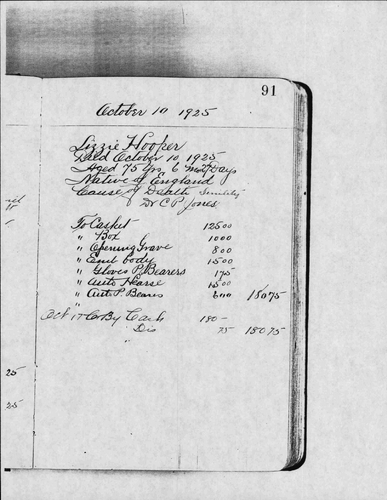 91
October 10 1925
Lizzie Hooper
Died October 10, 1925
Aged 75 Yrs 6 Mos Days
Native of England
Cause of Death Senility
Dr C P Jones
To Casket 125 00
" Box 10 00
" Opening Grave 8 00
" Emb body 15 00
" Gloves P. Bearers 1 75
" Auto Hearse 15 00
" Auto P. Bearers 6 00 180 75
Oct 17 By Cash 180 -
Dis 75 180 75
25
25